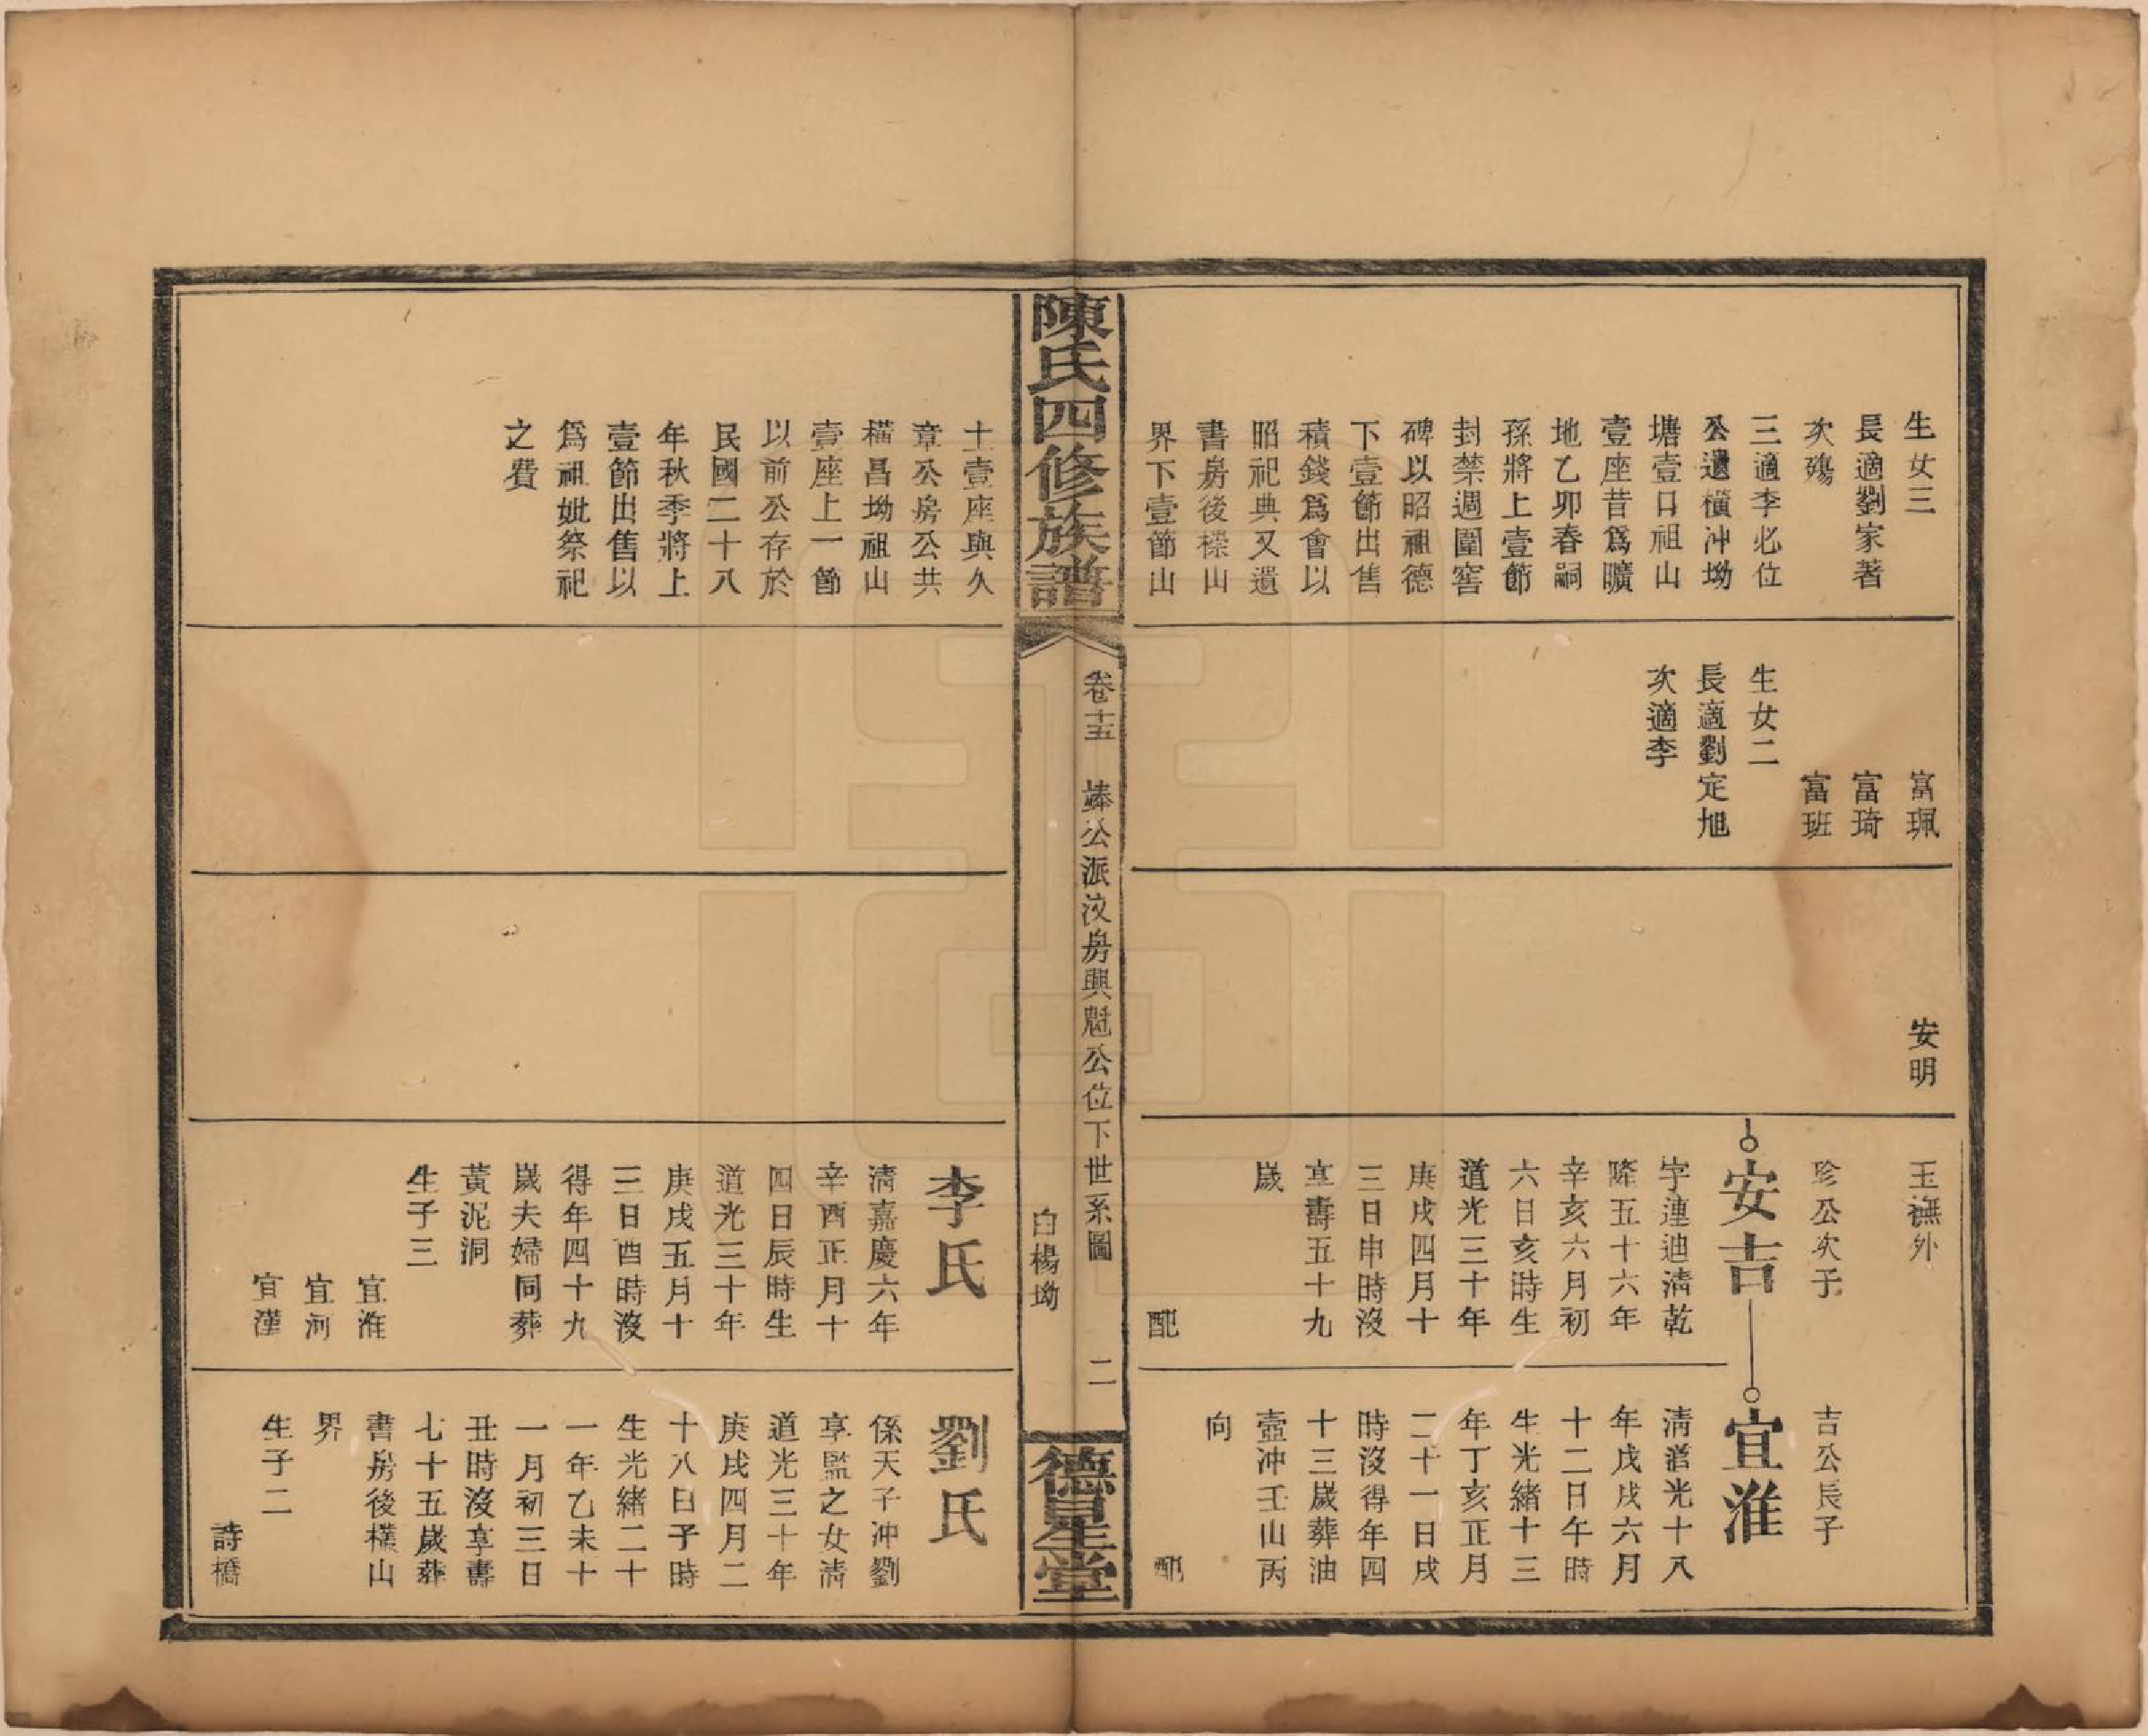 生女三
長適劉家著
次殤
三適李必位
公遺橫冲坳
塘壹口祖山
壹座昔爲曠
地乙卯春嗣
孫將上壹節
封禁週圍窖
碑以昭祖德
下壹節出售
積錢爲會以
昭祀典又遺
書房後檪山
界下壹節山
富珮
富琦
富班
生女二
長適劉定旭
次適李
安明
玉撫外
珍公次子
安吉
字連迪淸乾
隆五十六年
辛亥六月初
六日亥時生
道光三十年
庚戌四月十
三日申時沒
享壽五十九
歲
配
吉公長子
宜淮
淸道光十八
年戊戌六月
十二日午時
生光緖十三
年丁亥正月
二十一日戌
時沒得年四
十三歲葬油
壺冲壬山丙
向
配
陳氏四修族譜
卷十五 捧公派汶房興魁公位下世系圖 二
白楊坳
德星堂
土壹座與久
章公房公共
橫昌坳祖山
壹座上一節
以前公存於
民國二十八
年秋季將上
壹節出售以
爲祖妣祭祀
之費
李氏
淸嘉慶六年
辛酉正月十
四日辰時生
道光三十年
庚戌五月十
三日酉時沒
得年四十九
歲夫婦同葬
黃泥洞
生子三
宜淮
宜河
宜漢
劉氏
係天子冲劉
享監之女淸
道光三十年
庚戌四月二
十八日子時
生光緖二十
一年乙未十
一月初三日
丑時沒享壽
七十五歲葬
書房後檪山
界
生子二
詩橋